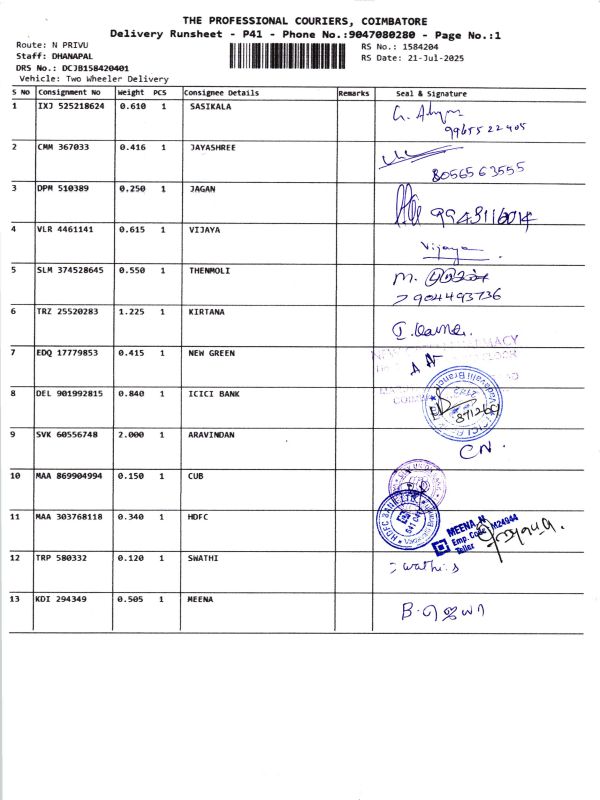 THE PROFESSIONAL COURIERS, COIMBATORE
Delivery Runsheet - P41 - Phone No.:9047080280 - Page No.:1
Route: N PRIVU
RS No.: 1584204
Staff: DHANAPAL
RS Date: 21-Jul-2025
DRS No.: DCJB158420401
Vehicle: Two Wheeler Delivery
S No Consignment No Weight PCS Consignee Details Remarks Seal & Signature
1 IXJ 525218624 0.610 1 SASIKALA
9965522405
2 CMM 367033 0.416 1 JAYASHREE
8056563555
3 DPM 510389 0.250 1 JAGAN
4 VLR 4461141 0.615 1 VIJAYA
Vijaya
5 SLM 374528645 0.550 1 THENMOLI
M.
7904493736
6 TRZ 25520283 1.225 1 KIRTANA
7 EDQ 17779853 0.415 1 NEW GREEN
8 DEL 901992815 0.840 1 ICICI BANK
Vadavalli Branch
9 SVK 60556748 2.000 1 ARAVINDAN
CN.
10 MAA 869904994 0.150 1 CUB
11 MAA 303768118 0.340 1 HDFC
HDFC BANK LTD
MEENA .N
Emp. Code M24944
Teller
12 TRP 580332 0.120 1 SWATHI
Swathi.S
13 KDI 294349 0.505 1 MEENA
B. ஜெயா